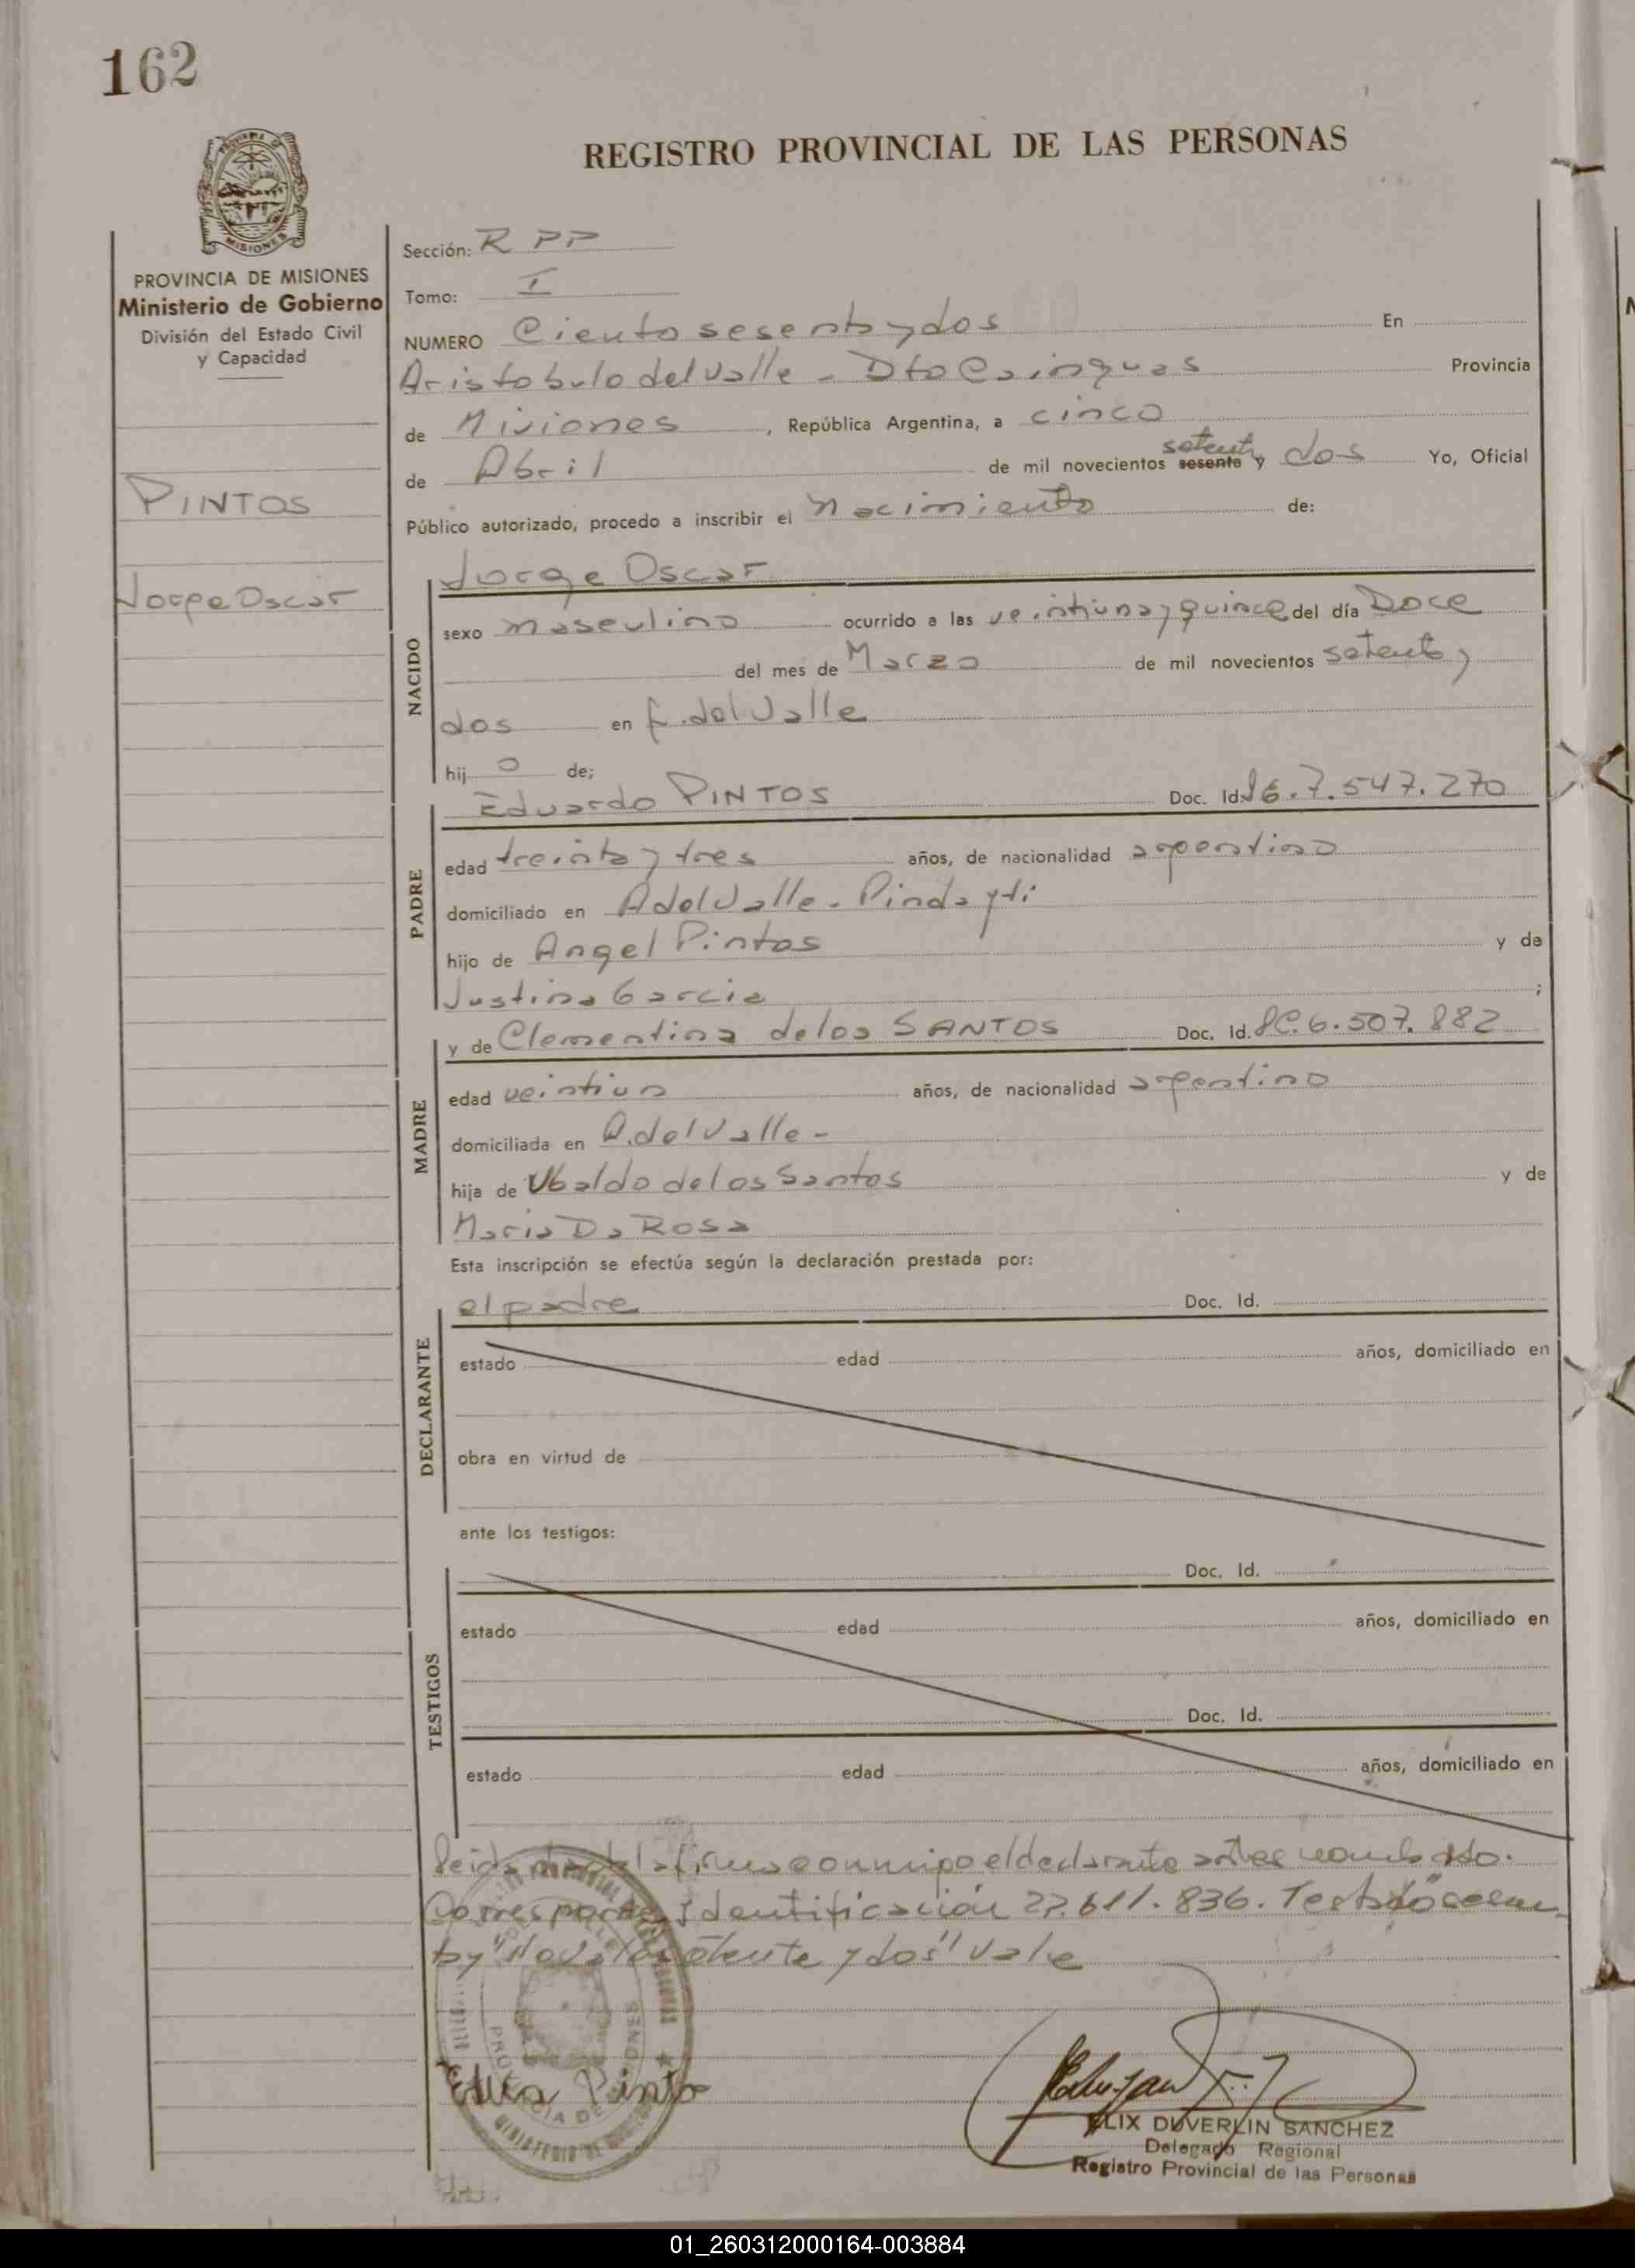 162
REGISTRO PROVINCIAL DE LAS PERSONAS
MISIONES
PROVINCIA DE MISIONES
Ministerio de Gobierno
División del Estado Civil
y Capacidad
PINTOS
Jorge Oscar
Sección: R PP
Tomo: I
NUMERO Ciento sesenta y dos En
Aristobulo del Valle - Dto Cainguas Provincia
de Misiones, República Argentina, a cinco
de Abril de mil novecientos sesenta setenta y dos Yo, Oficial
Público autorizado, procedo a inscribir el nacimiento de:
NACIDO
Jorge Oscar
sexo masculino ocurrido a las veintiuna y quince del día Doce
del mes de Marzo de mil novecientos setenta y
dos en A. del Valle
hij o de;
PADRE
Eduardo PINTOS Doc. Id. 7.547.270
edad treinta y tres años, de nacionalidad argentino
domiciliado en A del Valle - Pindayti
hijo de Angel Pintos y de
Justina Garcia ;
MADRE
y de Clementina de los SANTOS Doc. Id. LC. 6.507.882
edad veintiun años, de nacionalidad argentino
domiciliada en A. del Valle -
hija de Ubaldo de los Santos y de
Maria Da Rosa
Esta inscripción se efectúa según la declaración prestada por:
DECLARANTE
el padre Doc. Id.
estado edad años, domiciliado en
obra en virtud de
ante los testigos:
TESTIGOS
Doc. Id.
estado edad años, domiciliado en
Doc. Id.
estado edad años, domiciliado en
Leida el acta la firma conmigo el declarante antes nombrado.
Corresponde Identificación 22.611.836.
y dos" Vale
Pinto
FELIX DUVERLIN SANCHEZ
Delegado Regional
Registro Provincial de las Personas
01_260312000164-003884